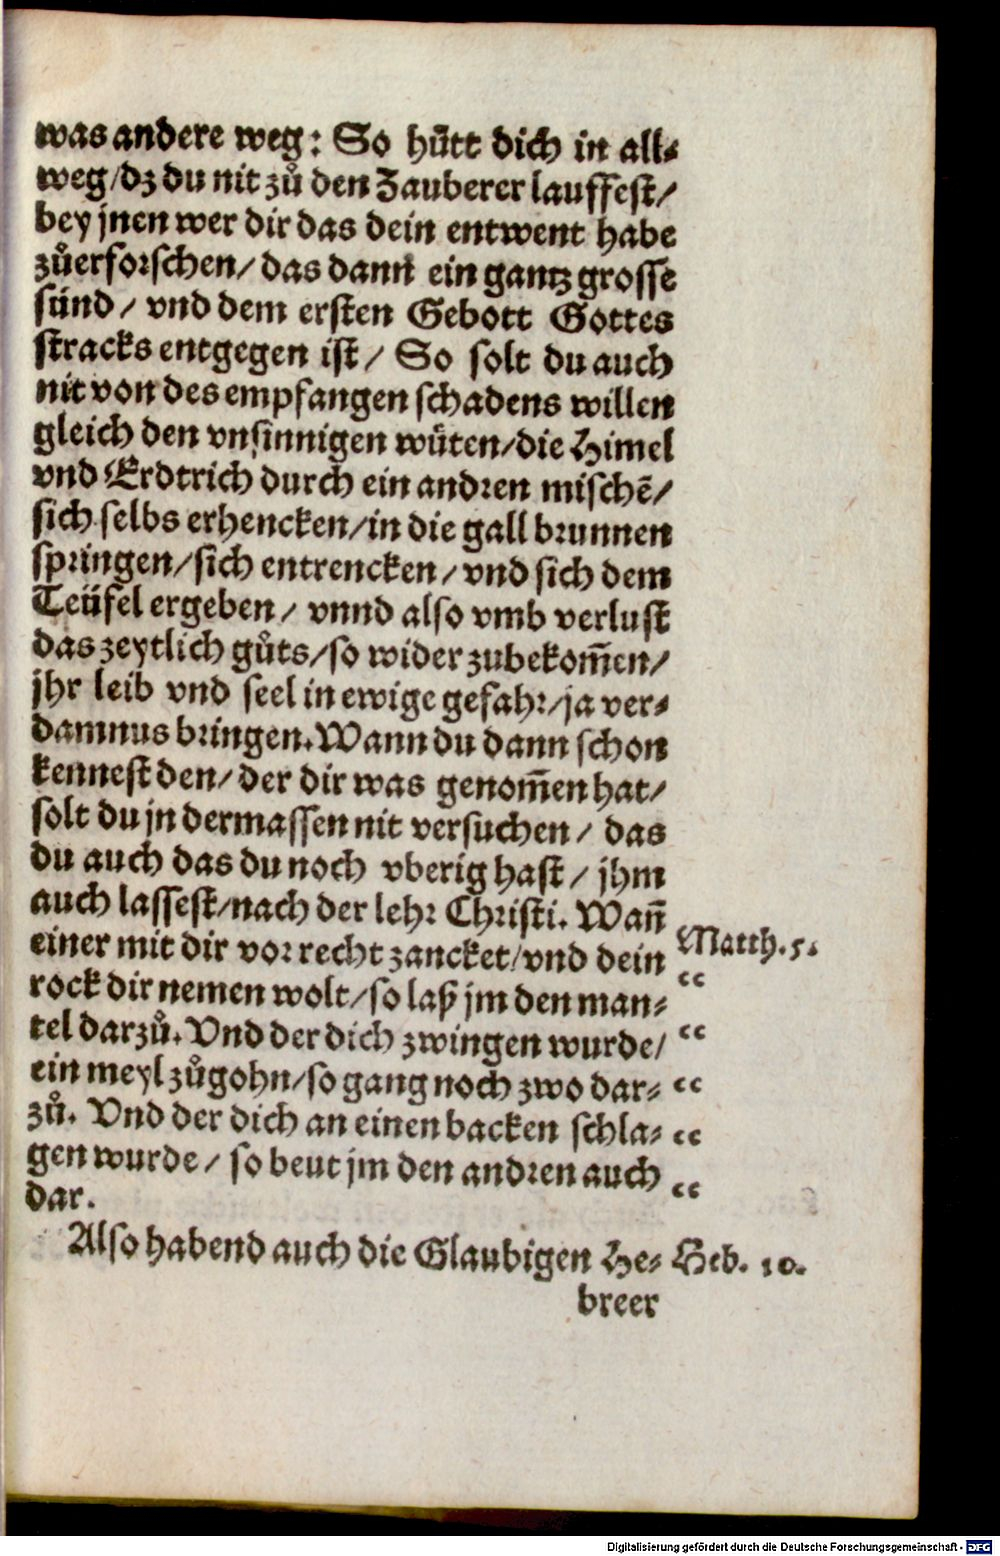 was andere weg: So hütt dich in all⸗
weg/dz du nit zů den Zauberer lauffest/
bey jnen wer dir das dein entwent habe
zůerforschen/ das dann ein gantz grosse
sünd/ vnd dem ersten Gebott Gottes
stracks entgegen ist/ So solt du auch
nit von des empfangen schadens willen
gleich den vnsinnigen wüten/die Himel
vnd Erdtrich durch ein andren mischē/
sich selbs erhencken/in die gall brunnen
springen/sich entrencken/vnd sich dem
Teüfel ergeben/ vnnd also vmb verlust
das zeytlich gůts/so wider zubekom̄en/
jhr leib vnd seel in ewige gefahr/ja ver⸗
damnus bringen. Wann du dann schon
kennest den/ der dir was genom̄en hat/
solt du jn dermassen nit versuchen/ das
du auch das du noch vberig hast/ jhm
auch lassest/nach der lehr Christi. Wañ
einer mit dir vor recht zancket/vnd dein Matth. 5.
rock dir nemen wolt/so laß jm den man⸗ “
tel darzů. Vnd der dich zwingen wurde/ “
ein meyl zůgohn/so gang noch zwo dar⸗ “
zů. Vnd der dich an einen backen schla⸗ “
gen wurde/ so beut jm den andren auch “
dar.
Also habend auch die Glaubigen He⸗ Heb. 10.
breer
Digitalisierung gefördert durch die Deutsche Forschungsgemeinschaft - DFG